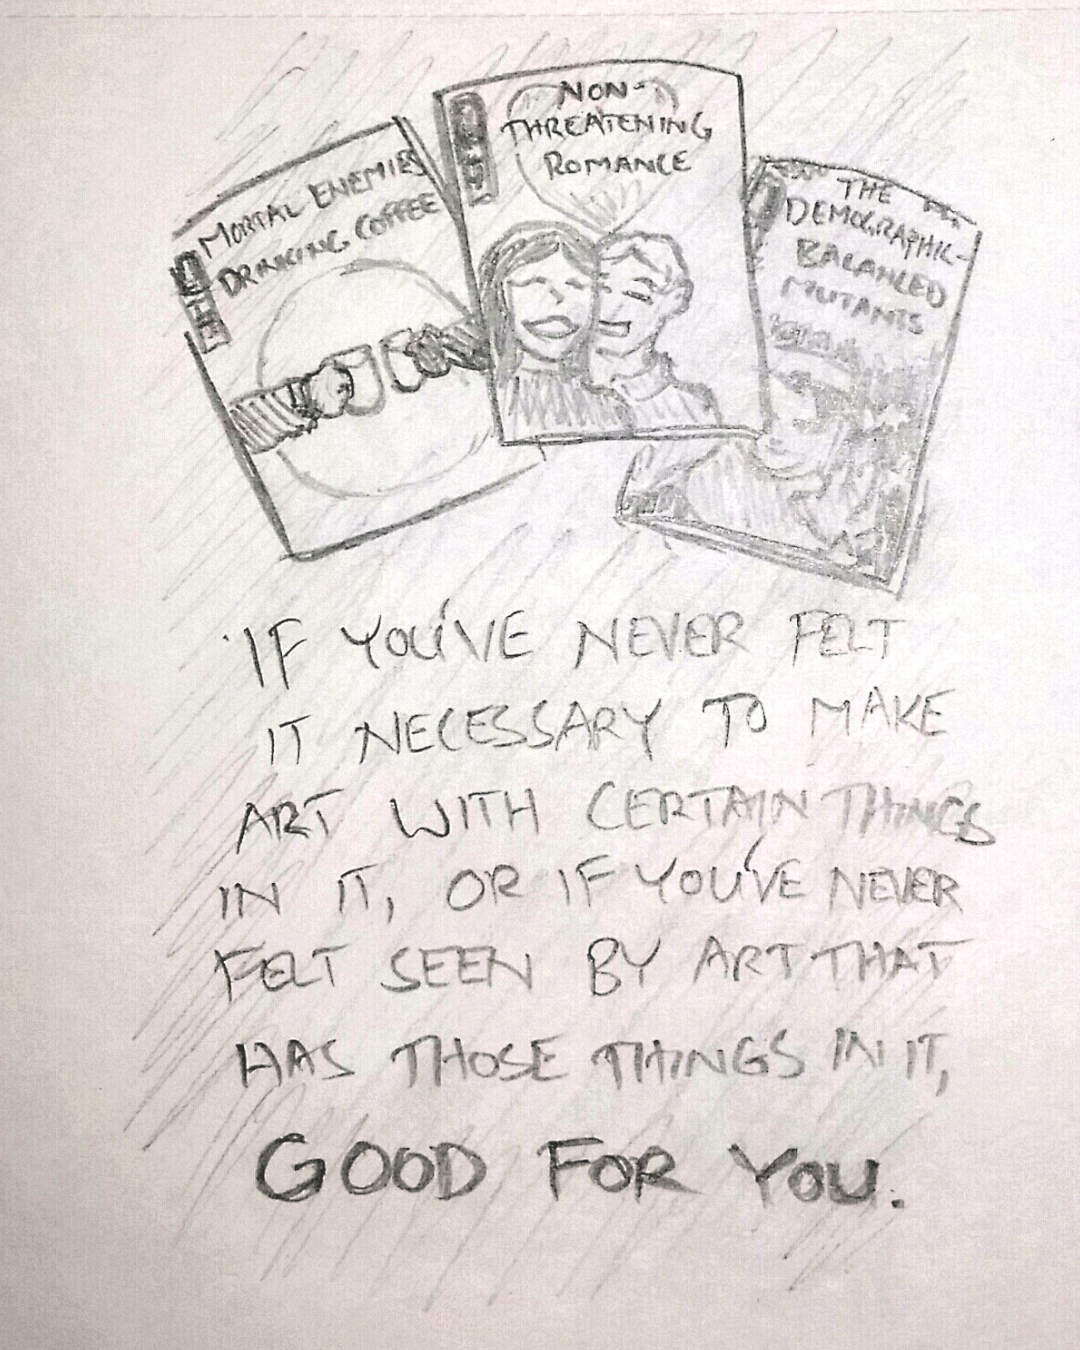 MORTAL ENEMIES
DRINKING COFFEE
NON-
THREATENING
ROMANCE
THE
DEMOGRAPHIC-
BALANCED
MUTANTS
IF YOU'VE NEVER FELT
IT NECESSARY TO MAKE
ART WITH CERTAIN THINGS
IN IT, OR IF YOU'VE NEVER
FELT SEEN BY ART THAT
HAS THOSE THINGS IN IT,
GOOD FOR YOU.